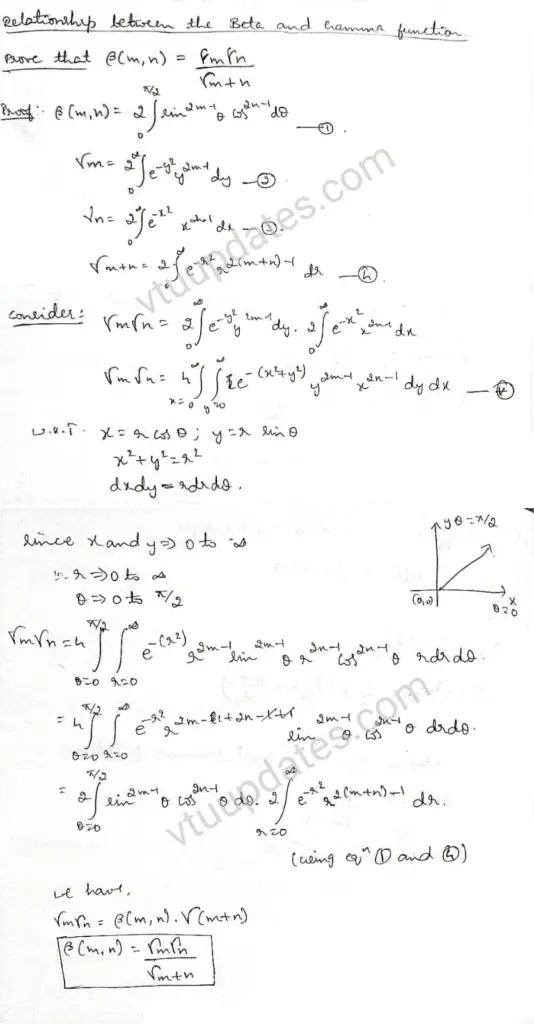 Relationship between the Beta and Gamma function.
Prove that β(m,n) = Γm Γn / Γm+n
Proof:- β(m,n) = 2 ∫₀^{π/2} sin^{2m-1}θ cos^{2n-1} dθ —①.
Γm = 2 ∫₀^∞ e^{-y²} y^{2m-1} dy —②
Γn = 2 ∫₀^∞ e^{-x²} x^{2n-1} dx —③.
Γm+n = 2 ∫₀^∞ e^{-r²} r^{2(m+n)-1} dr —④.
Consider: Γm Γn = 2 ∫₀^∞ e^{-y²} y^{2m-1} dy. 2 ∫₀^∞ e^{-x²} x^{2n-1} dx
Γm Γn = 4 ∫_{x=0}^∞ ∫_{y=0}^∞ e^{-(x²+y²)} y^{2m-1} x^{2n-1} dy dx —
W.K.T. x = r cos θ ; y = r sin θ
x² + y² = r²
dxdy = rdrdθ.
yθ = π/2
Since x and y ⇒ 0 to ∞
∴ r ⇒ 0 to ∞
(0,0)
x
θ=0
θ ⇒ 0 to π/2
Γm Γn = 4 ∫_{θ=0}^{π/2} ∫_{r=0}^∞ e^{-(r²)} r^{2m-1} sin^{2m-1} θ r^{2n-1} cos^{2n-1} θ rdrdθ.
= 4 ∫_{θ=0}^{π/2} ∫_{r=0}^∞ e^{-r²} r^{2m-1+2n-1+1} sin^{2m-1} θ cos^{2n-1} θ drdθ.
= 2 ∫_{θ=0}^{π/2} sin^{2m-1} θ cos^{2n-1} θ dθ. 2 ∫_{r=0}^∞ e^{-r²} r^{2(m+n)-1} dr.
(using eqⁿ ① and ④)
we have,
Γm Γn = β(m,n). Γ(m+n)
β(m,n) = Γm Γn / Γm+n
vtuupdates.com
vtuupdates.com